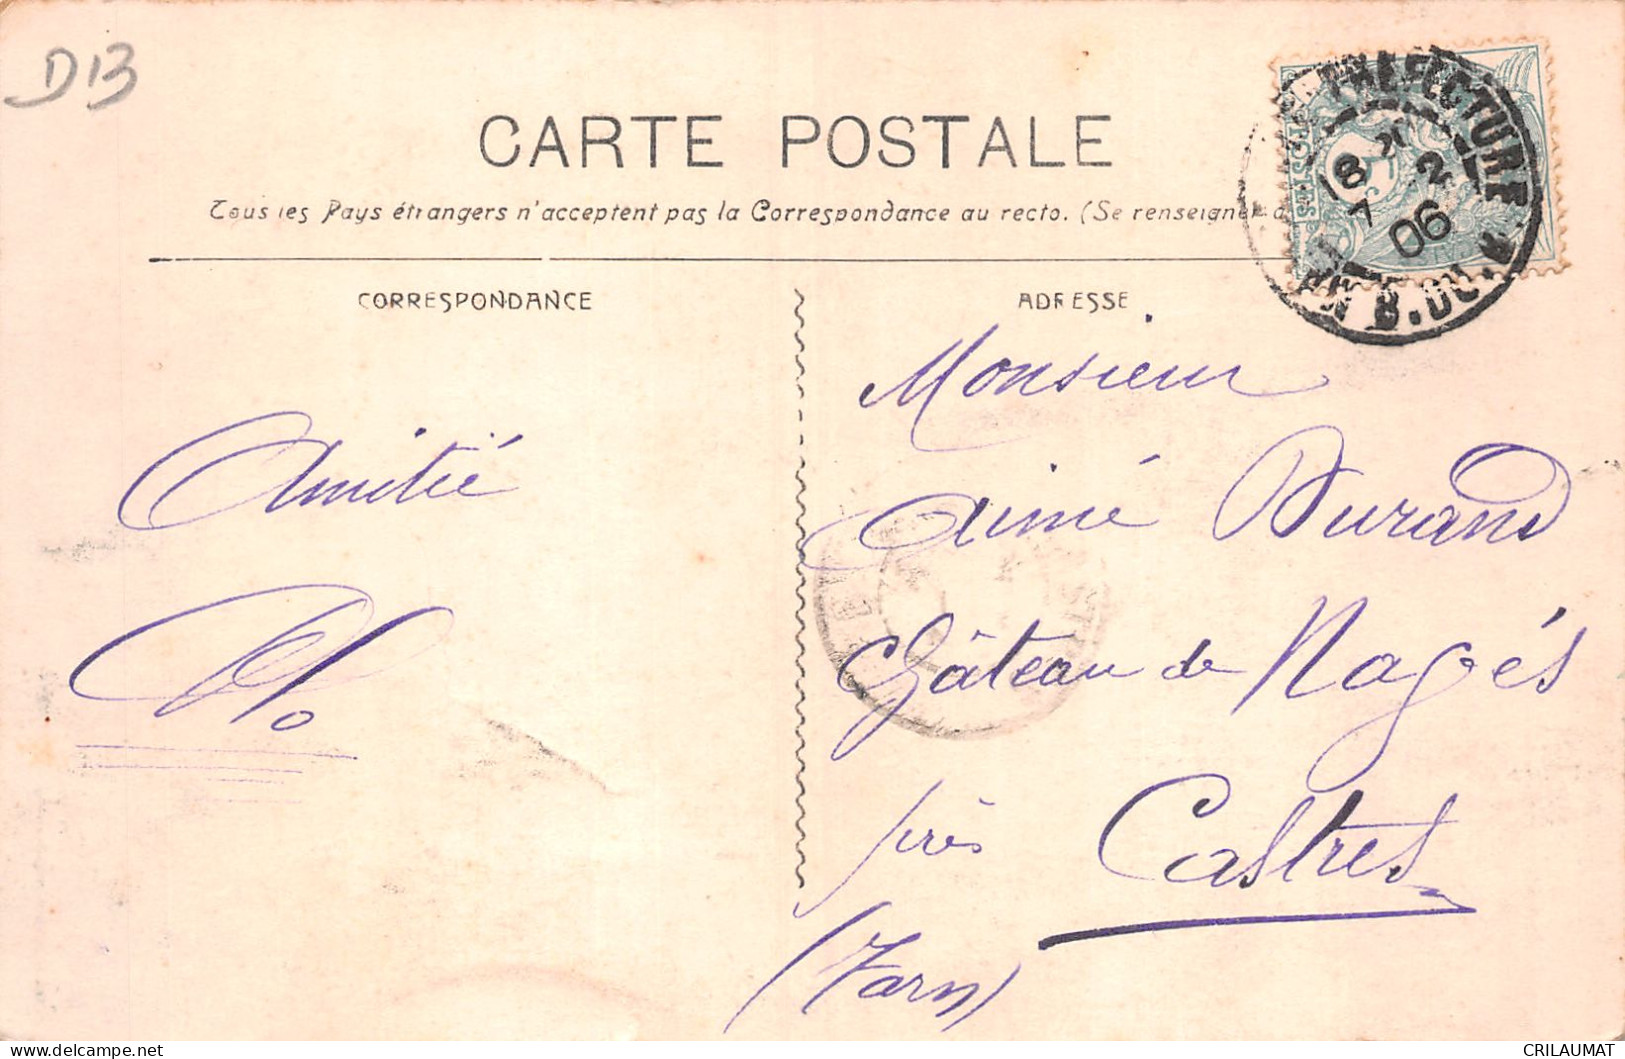 D13
CARTE POSTALE
Tous les Pays étrangers n'acceptent pas la Correspondance au recto. (Se renseigner à
CORRESPONDANCE
ADRESSE
PREFECTURE
18 2
7 06
B. DU
POSTES
Amitié
Monsieur
Aimé Durand
Château de Nagés
près Castres
(Tarn)
CRILAUMAT